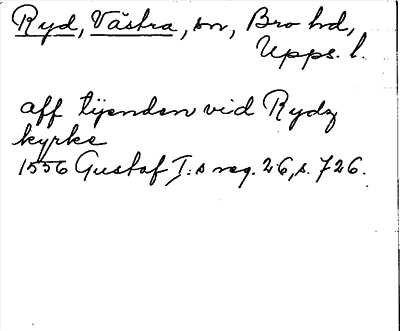 Ryd, Västra, sn, Bro hd,
Upps. l.
aff tijenden vid Rydz
kyrke
1556 Gustaf I:s reg. 26, s. 726.